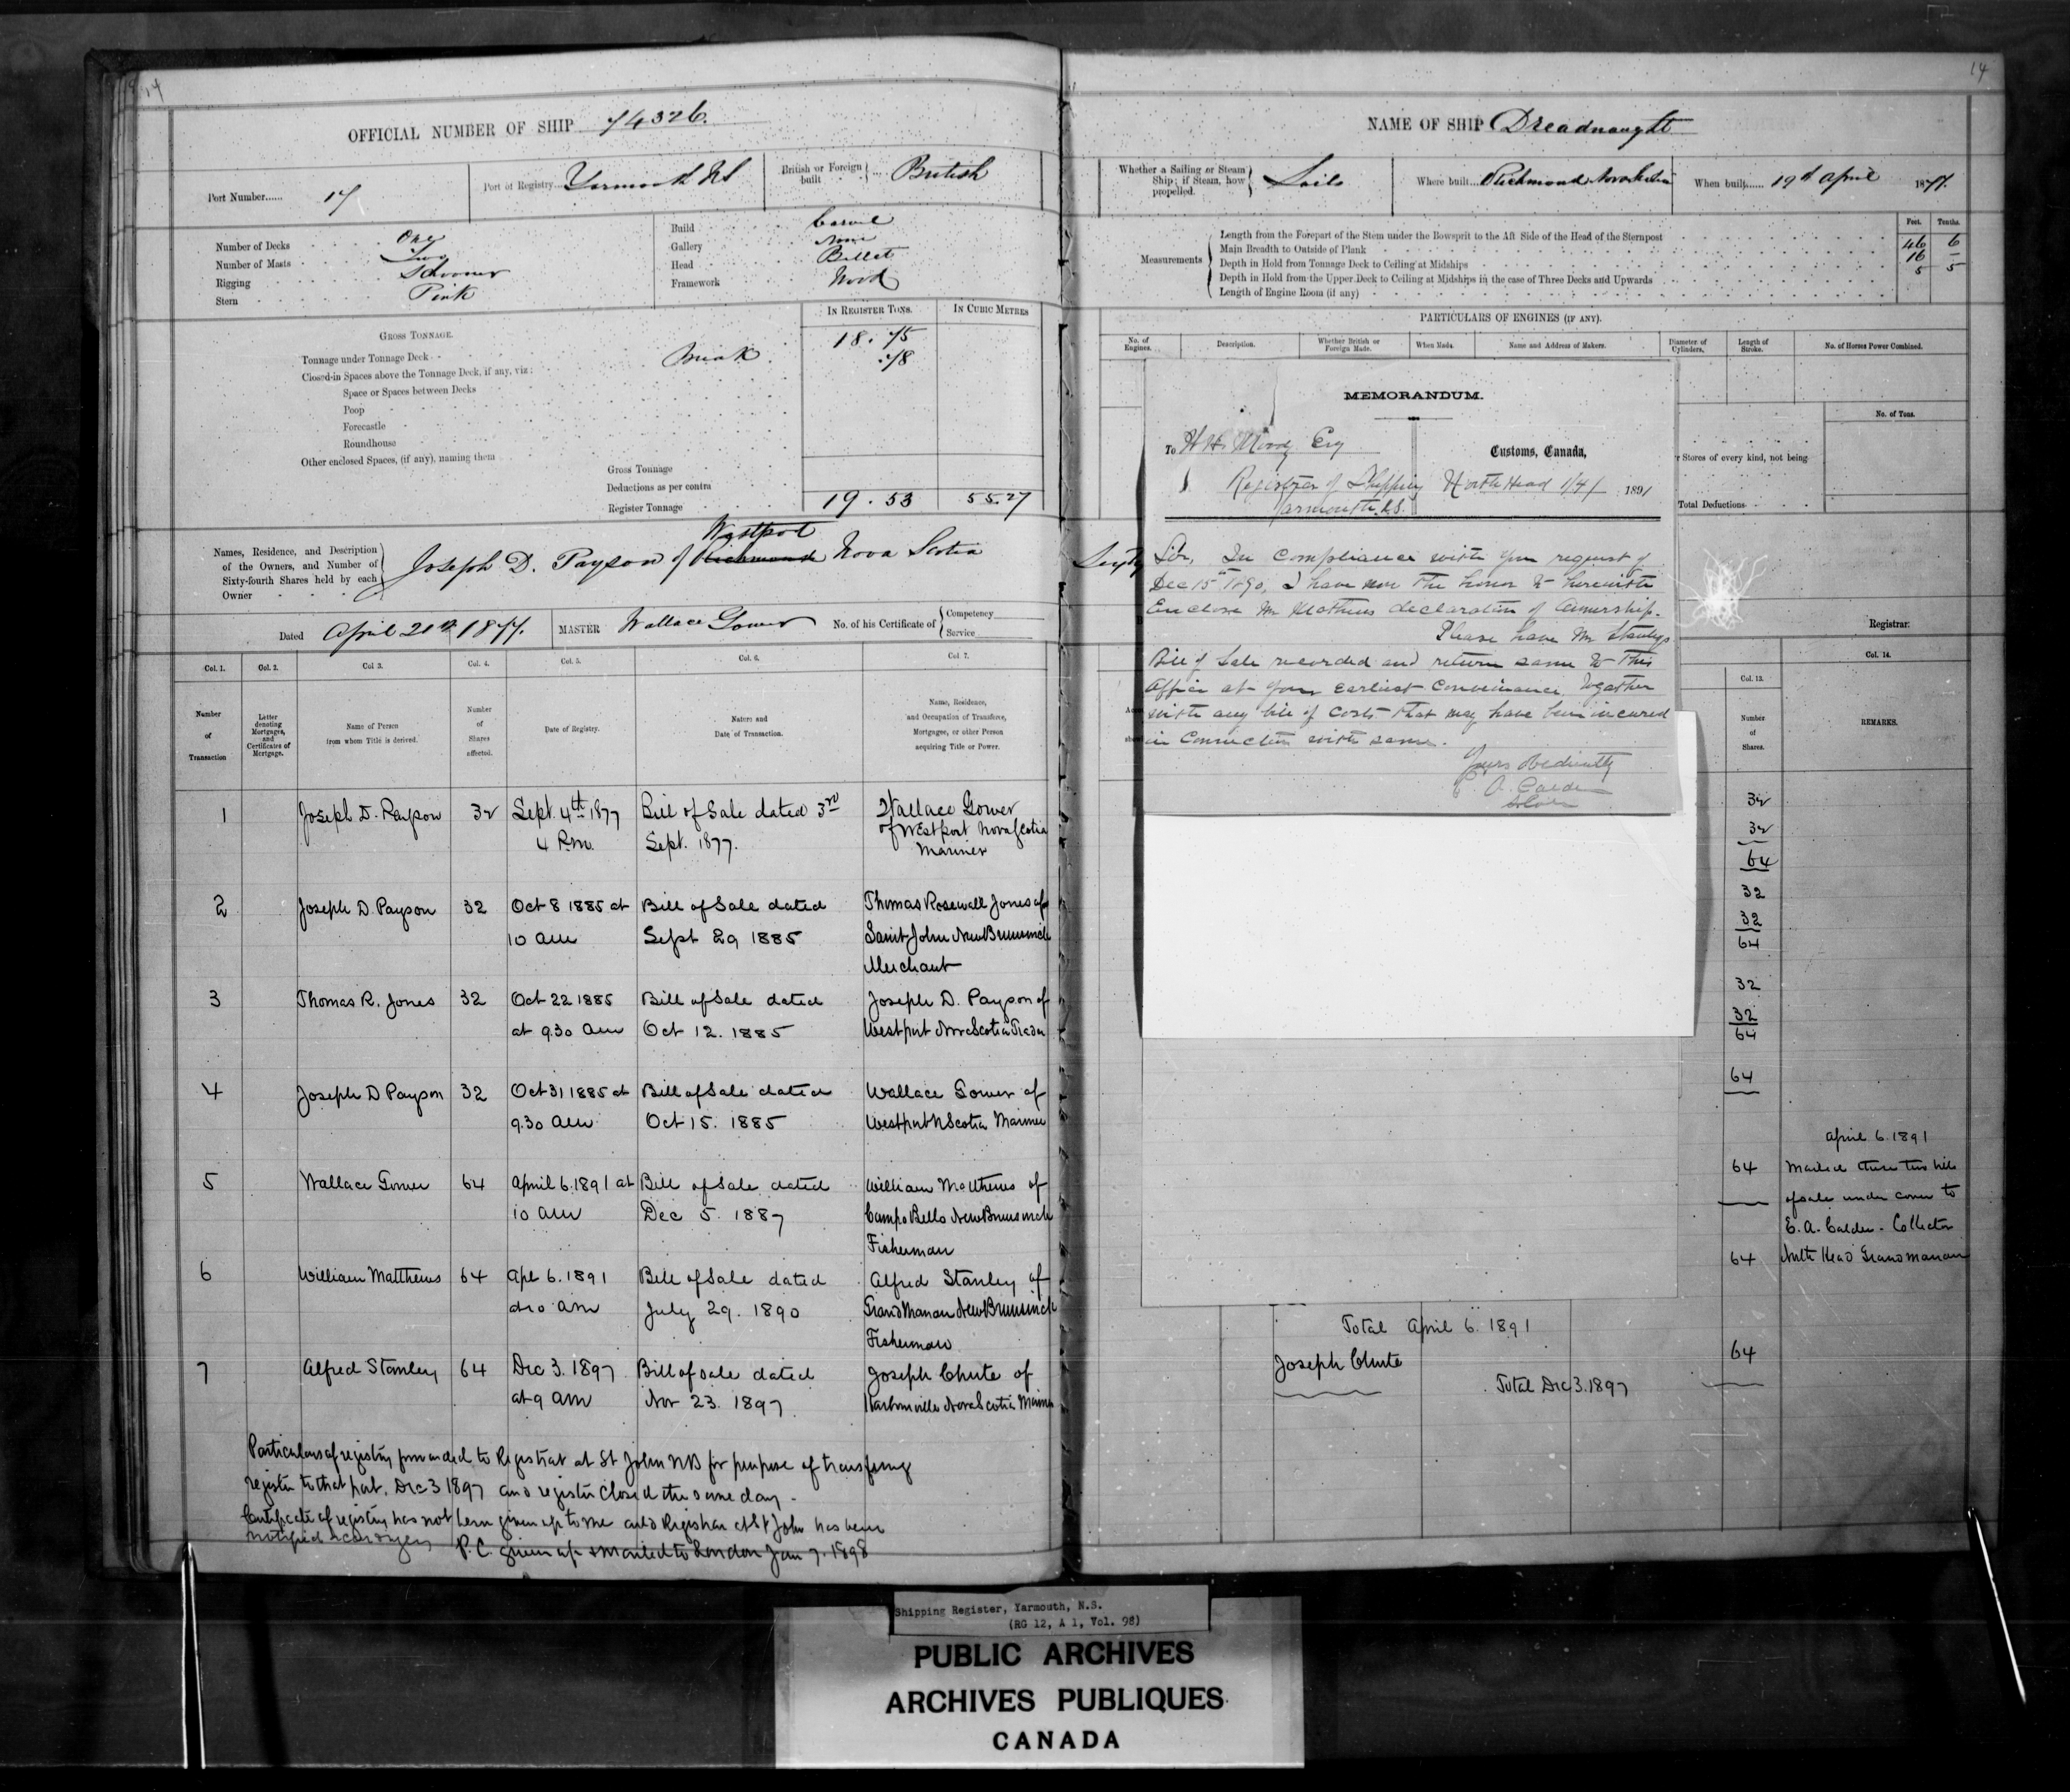 14
OFFICIAL NUMBER OF SHIP 74326.
Port Number...... 17
Port of Registry... Yarmouth NS
British or Foreign built British
Number of Decks One
Number of Masts Two
Rigging Schooner
Stern Pink
Build Carvel
Gallery None
Head Billet
Framework Wood
GROSS TONNAGE.
IN REGISTER TONS.
IN CUBIC METRES
Tonnage under Tonnage Deck 18.75
Closed-in Spaces above the Tonnage Deck, if any, viz: Break .78
Space or Spaces between Decks
Poop
Forecastle
Roundhouse
Other enclosed Spaces, (if any), naming them
Gross Tonnage
Deductions as per contra
Register Tonnage 19.53 55.27
Names, Residence, and Description
of the Owners, and Number of
Sixty-fourth Shares held by each
Owner
Westport
Joseph D. Payson of Richmond Nova Scotia
Dated April 21st 1877. MASTER Wallace Gower No. of his Certificate of Competency
Service
Col. 1. Col. 2. Col 3. Col. 4. Col. 5. Col. 6. Col. 7.
Number of Transaction
Letter denoting Mortgages, and Certificates of Mortgage.
Name of Person from whom Title is derived.
Number of Shares affected.
Date of Registry.
Nature and Date of Transaction.
Name, Residence, and Occupation of Transferee, Mortgagee, or other Person acquiring Title or Power.
1 Joseph D. Payson 32 Sept. 4th 1877 Bill of Sale dated 3rd Wallace Gower
4 P.m. Sept. 1877. of Westport Nova Scotia
Mariner
2 Joseph D. Payson 32 Oct 8 1885 at Bill of Sale dated Thomas Rosewall Jones of
10 am Sept 29 1885 Saint John New Brunswick
Merchant
3 Thomas R. Jones 32 Oct 22 1885 Bill of Sale dated Joseph D. Payson of
at 9.30 am Oct 12. 1885 Westport Nova Scotia Trader
4 Joseph D Payson 32 Oct 31 1885 at Bill of Sale dated Wallace Gower of
9.30 am Oct 15. 1885 Westport N Scotia Mariner
5 Wallace Gower 64 April 6. 1891 at Bill of Sale dated William Matthews of
10 am Dec 5. 1887 Campo Bello New Brunswick
Fisherman
6 William Matthews 64 Apl 6. 1891 Bill of Sale dated Alfred Stanley of
at 10 am July 29. 1890 Grand Manan New Brunswick
Fisherman
7 Alfred Stanley 64 Dec 3. 1897 Bill of sale dated Joseph Chute of
at 9 am Nov 23. 1897 Harbourville Nova Scotia Mariner
Particulars of registry forwarded to Registrar at St John NB for purpose of transferring
register to that port, Dec 3 1897 and register closed the same day.
Certificate of registry has not been given up to me and Registrar at St John has been
notified accordingly P.C. given up & mailed to London Jan 7. 1898
14
NAME OF SHIP Dreadnaught
Whether a Sailing or Steam Ship; if Steam, how propelled. Sails
Where built... Richmond Nova Scotia
When built...... 19th April 1877.
Feet. Tenths.
Measurements
Length from the Forepart of the Stem under the Bowsprit to the Aft Side of the Head of the Sternpost 46 6
Main Breadth to Outside of Plank 16 –
Depth in Hold from Tonnage Deck to Ceiling at Midships 5 5
Depth in Hold from the Upper Deck to Ceiling at Midships in the case of Three Decks and Upwards
Length of Engine Room (if any)
PARTICULARS OF ENGINES (IF ANY).
No. of Engines.
Description.
Whether British or Foreign Made.
When Made.
Name and Address of Makers.
Diameter of Cylinders.
Length of Stroke.
No. of Horses Power Combined.
No. of Tons.
r Stores of every kind, not being
Total Deductions
MEMORANDUM.
To H H. Moody Esq
Registrar of Shipping
Yarmouth N.S.
Customs, Canada,
North Head 1/4/ 1891
Sixty
Sir, In compliance with your request of
Dec 15th 1890, I have now the honor to herewith
Enclose Mr Mathews declaration of Ownership.
Please have Mr Stanleys
Bill of Sale recorded and return same to this
Office at your earliest convenience, together
with any bill of costs that may have been incured
in connection with same.
Yours Obediently
A. Calder
Registrar.
Col. 13.
Col. 14.
Number of Shares.
REMARKS.
32
32
64
32
32
64
32
32
64
64
April 6. 1891
64 Mailed these two bills
of sale under cover to
E. A. Calder - Collector
64 North Head Grand Manan
Total April 6. 1891
Joseph Chute 64
Total Dec 3. 1897
Shipping Register, Yarmouth, N.S.
(RG 12, A 1, Vol. 98)
PUBLIC ARCHIVES
ARCHIVES PUBLIQUES
CANADA